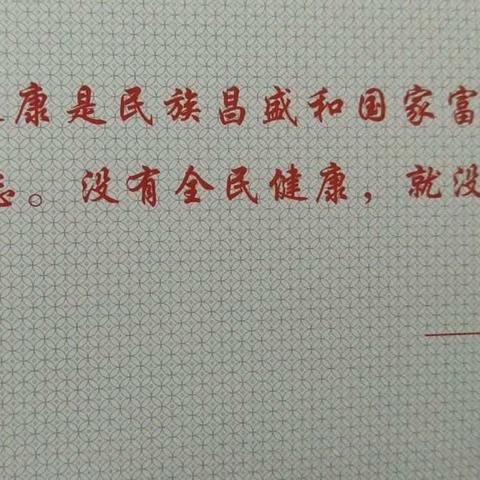 康是民族昌盛和国家富
。没有全民健康，就没